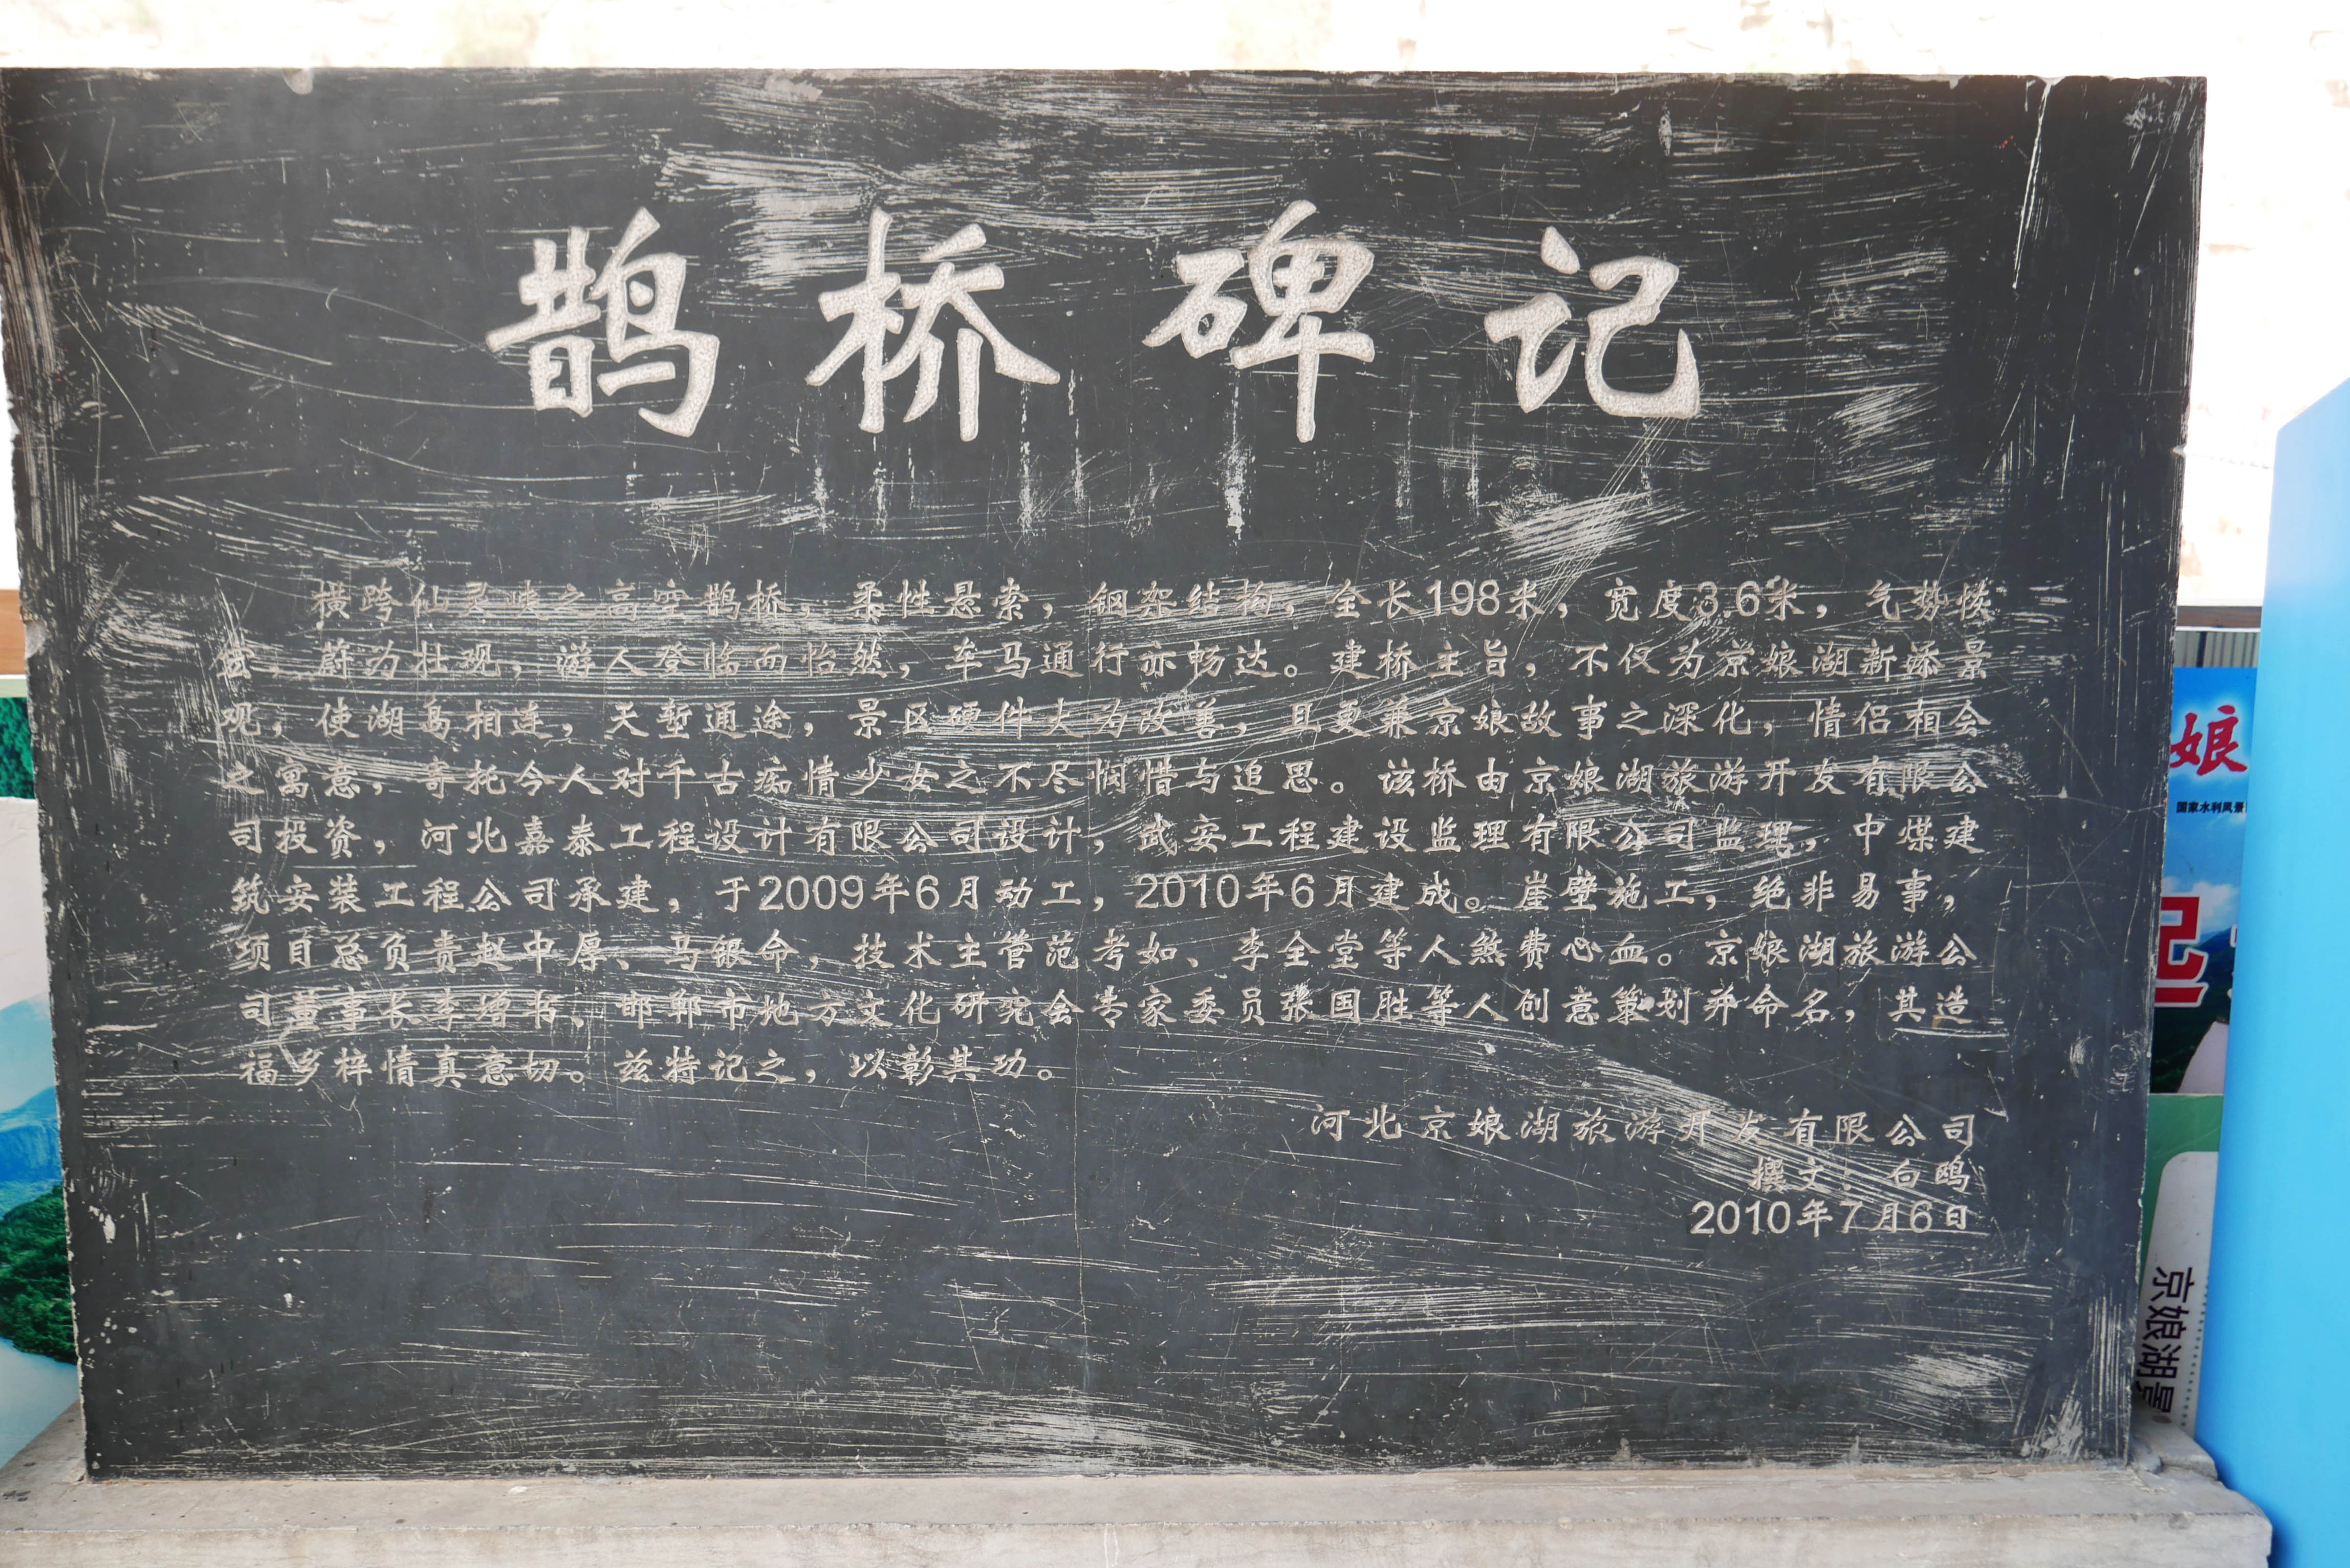 鹊桥碑记
横跨仙灵峡之高空鹊桥，柔性悬索，钢架结构，全长198米，宽度3.6米，气势恢
宏，蔚为壮观，游人登临而怡然，车马通行亦畅达。建桥主旨，不仅为京娘湖新添景
观，使湖岛相连，天堑通途，景区硬件大为改善，且更兼京娘故事之深化，情侣相会
之寓意，寄托今人对千古痴情少女之不尽悯惜与追思。该桥由京娘湖旅游开发有限公
司投资，河北嘉泰工程设计有限公司设计，武安工程建设监理有限公司监理，中煤建
筑安装工程公司承建，于2009年6月动工，2010年6月建成。崖壁施工，绝非易事，
项目总负责赵中厚、马银命，技术主管范考如、李全堂等人煞费心血。京娘湖旅游公
司董事长李增书、邯郸市地方文化研究会专家委员张国胜等人创意策划并命名，其造
福乡梓情真意切。兹特记之，以彰其功。
河北京娘湖旅游开发有限公司
撰文：白鸥
2010年7月6日
娘
国家水利风景
京娘湖景